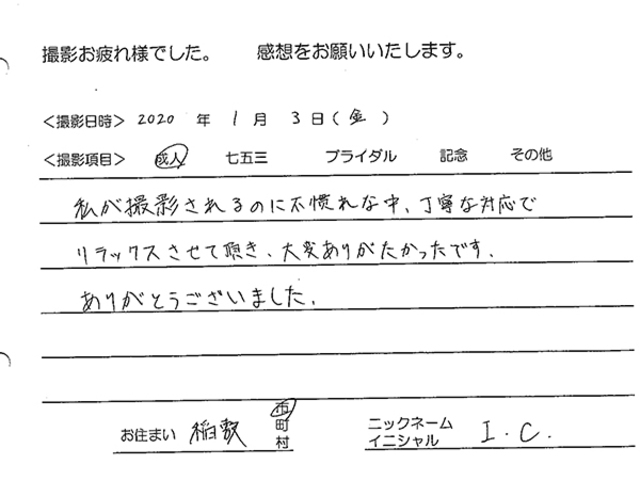 撮影お疲れ様でした。 感想をお願いいたします。
<撮影日時> 2020 年 1 月 3 日 ( 金 )
<撮影項目> 成人 七五三 ブライダル 記念 その他
私が撮影されるのに不慣れな中、丁寧な対応で
リラックスさせて頂き、大変ありがたかったです。
ありがとうございました。
お住まい 稲敷 市 町 村 ニックネーム イニシャル I.C.